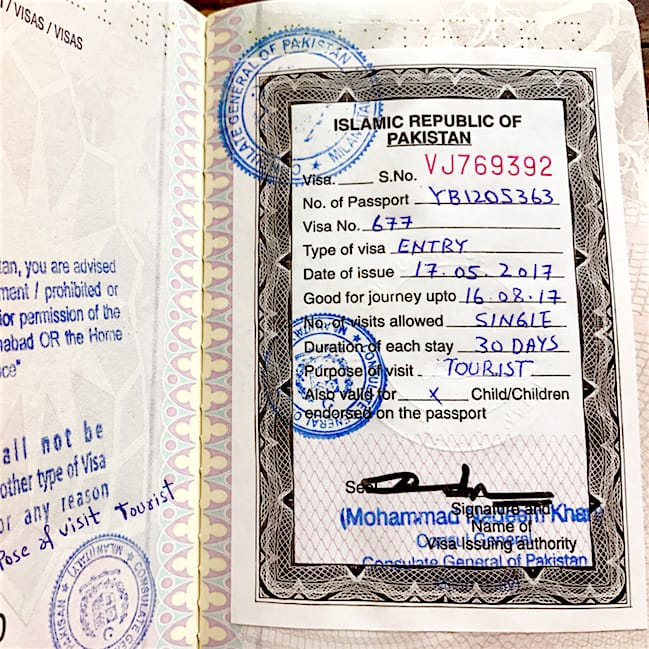 / VISAS / VISAS
tan, you are advised
ment / prohibited or
ior permission of the
nabad OR the Home
ce"
all not be
other type of Visa
or any reason
pose of visit Tourist
CONSULATE GENERAL OF PAKISTAN
MILAN (ITALY)
CONSULATE GENERAL OF PAKISTAN
MILAN
ISLAMIC REPUBLIC OF
PAKISTAN
Visa. S.No. VJ769392
No. of Passport YB1205363
Visa No. 677
Type of visa ENTRY
Date of issue 17.05.2017
Good for journey upto 16.08.17
No. of visits allowed SINGLE
Duration of each stay 30 DAYS
Purpose of visit TOURIST
Also valid for x Child/Children
endorsed on the passport
Seal
Signature and
(Mohammad Nadeem Khan
Name of
Consul General
Visa Issuing authority
Consulate General of Pakistan